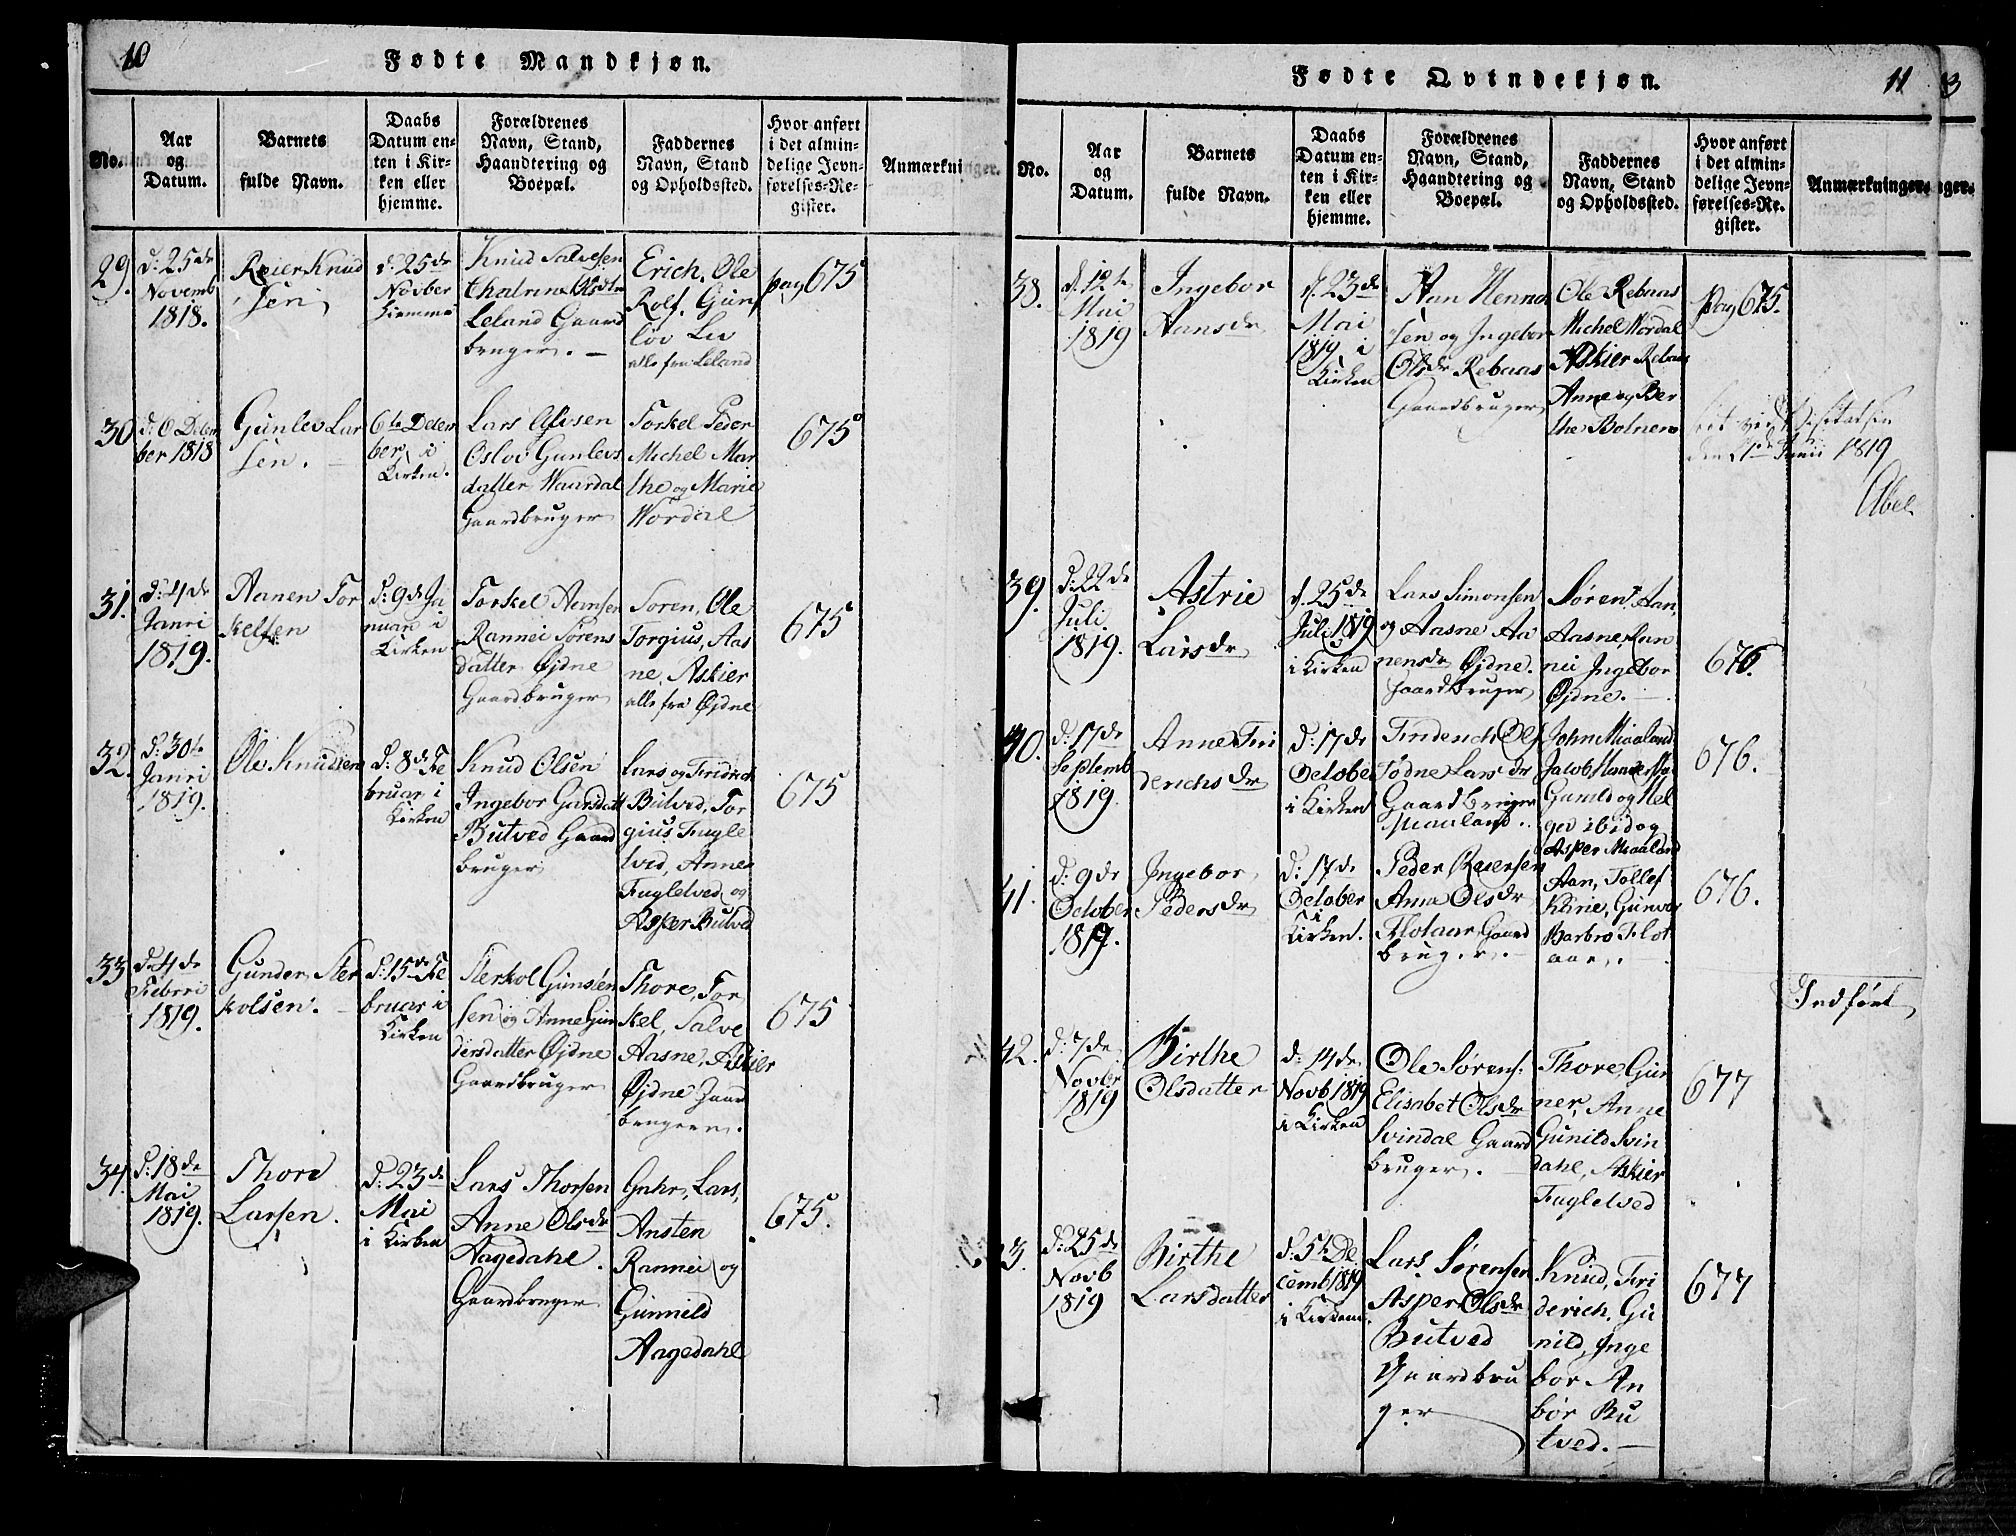 10
Fødte Mandkjøn.
No.
Aar
og
Datum.
Barnets
fulde Navn.
Daabs
Datum en-
ten i Kir-
ken eller
hjemme.
Forældrenes
Navn, Stand,
Haandtering og
Boepæl.
Faddernes
Navn, Stand
og Opholdssted.
Hvor anført
i det almin-
delige Jevn-
førelses-Re-
gister.
Anmærkninger.
29.
d: 25de
Novemb
1818.
Reier Knud
sen
d: 25de
Novber
hiemme
Knud Salvesen
Leland Gaard
bruger. —
Erich, Ole
Rolf, Gun
løv Liv
alle fra Leland
pag 675
30
d: 6 Decem
ber 1818
Gunlev Lar
sen. —
6te Decem
ber i
Kirken.
Lars Olvsen
Oslov Gunlevs
datter Waardal
Gaardbruger
Torkel Peder
Michel Mar
the og Marie
Wordal
675
31.
d: 4de
Janri
1819.
Aanen Tor
kelsen
d: 9de Ja
nuar i
Kirken
Torkel Aansen
Rannei Sørens
datter Øjdne
Gaardbruger
Soren, Ole
Torgius, Aas
ne, Askier
alle fra Øjdne
675
32.
d: 30te
Janri
1819.
Ole Knudsen
d: 8de Fe
bruar i
Kirken
Knud Olsen
Ingebor Garsdatt
Butved Gaard
bruger
Lars og Fridrich
Butved, Tor
gius Fugle
tved, Anne
Fugletved og
Asper Butved
675
33
d: 4de
Febrri
1819.
Gunder Ster
kolsen. —
d: 15de Fe
bruar i
Kirken
Sterkol Gunsten
sen og Anne Gun
dersdatter Øjdne
Gaardbruger
Thore, Tor
kel, Salve
Aasne, Askier
Øjdne Gaard
brugere.
675
34.
d: 18de
Mai
1819.
Thore
Larsen.
d: 23de
Mai
i Kirken
Lars Thorsen
Anne Olsdr
Aagedahl.
Gaardbruger
Guhr, Lars,
Ansten
Rannei og
Gunnild
Aagedahl
675.
Fødte Qvindekjøn.
11
3
No.
Aar
og
Datum.
Barnets
fulde Navn.
Daabs
Datum en-
ten i Kir-
ken eller
hjemme.
Forældrenes
Navn, Stand,
Haandtering og
Boepæl.
Faddernes
Navn, Stand
og Opholdssted.
Hvor anført
i det almin-
delige Jevn-
førelses-Re-
gister.
Anmærkninger.
38.
d. 12te
Mai
1819
Ingebor
Aansdr
d. 23de
Mai
1819 i
Kirken
Aan Henna
sen og Ingebor
Olsdr Rebaas
Gaardbruger
Ole Rebaas
Michel Wordal
Askier Rebaas
Anne og Ber
the Bolnem
pag 675.
Visitatsen
Junii 1819
Abel
39.
d: 22de
Juli
1819.
Astrie
Larsdr
d. 25de
Juli 1819
i Kirken
Lars Simonsen
og Aasne Aa
nensdr Øjdne.
Gaardbruger
Søren, Aan,
Aasne, Ran
nei Ingebor
Øjdne.
676.
40.
d: 17de
Septemb
1819.
Anne Fri
derichsdr
d: 17de
Octobe
i Kirken
Friderich Ols
Tødne Lars dr
Gaardbruger
Miaaland.
John Miaaland
Gunild og Hel
ged ibid og
Asper Miaaland
676.
41.
d: 9de
October
1819.
Ingebor
Pedersdr
d: 17de
October
i
Kirken.
Peder Reiersen
Anna Olsdr
Flotaar Gaard
bruger. —
Aan, Tollef
Kirie, Gunvor
Barbro Flot
aar.
676.
Indført
42.
d: 7de
Novbr
1819
Birthe
Olsdatter
d: 14de
Novb 1819
i Kirken
Ole Sørens.
Elisabet Olsdr
Svindal Gaard
bruger. —
Thore, Gun
ner, Anne
Gunild Svin
dahl, Askier
Fugletved
677
3.
d: 25de
Novb
1819
Birthe
Larsdatter
d: 5te De
cemb 1819
i Kirken.
Lars Sørensen
Asper Olsdr
Butved
Gaardbru
ger
Knud, Fri
derich, Gu
nild, Inge
bor An
bør Bu
tved. —
677